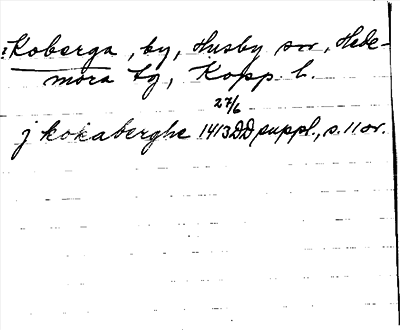 :Koberga, by, Husby sn, Hede-
mora tg, Kopp. l.
27/6
j kokaberghe 1413 DD suppl., s. 11 or.